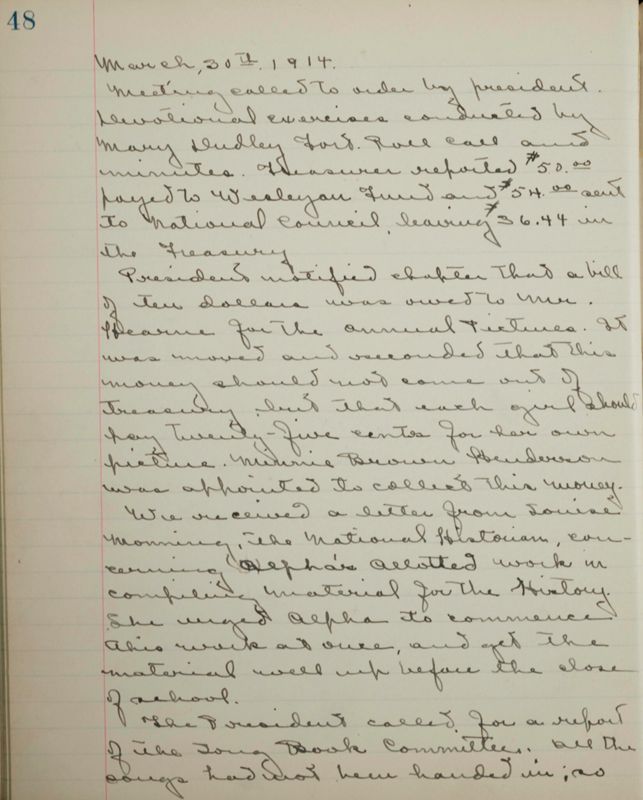 48
March, 30th. 1914.
Meeting called to order by president.
Devotional exercises conducted by
Mary Dudley Fort. Roll call and
minutes. Treasurer reported $50.00
payed to Wesleyan Fund and $54.00 sent
to National Council, leaving $36.44 in
the Treasury
President notified chapter that a bill
of ten dollars was owed to Mr.
Hearne for the annual Pictures. It
was moved and seconded that this
money should not come out of
treasury, but that each girl should
pay twenty-five cents for her own
picture. Minnie Brown Henderson
was appointed to collect this money.
We received a letter from Louise
Monning, the National Historian, con-
cerning Alpha's allotted work in
compiling material for the History.
She urged Alpha to commence
this work at once, and get the
material well up before the close
of school.
The President called for a report
of the Song Book Committee. All the
songs had not been handed in; so